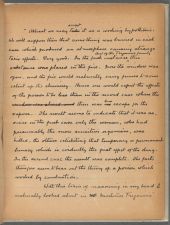 What we may take it as a working hypothesis.
We will suppose that something was burned in each
case which produced an atmosphere causing strange
toxic effects. Very good. In the first instance this
substance was placed in the fire. Now the window was
open, and the fire would naturally carry fumes to some
extent up the chimney. Hence one would expect the effects
of the poison to be less than in the second case where
there was less escape for the
vapour. The result seems to indicate that it was so,
since in the first case only the woman, who had
presumably the more sensitive organism, was
killed, the others exhibiting that temporary or permanent
lunacy which is evidently the first effect of the drug.
In the second case the result was complete. The facts
therefore seem to bear out the theory of a poison which
worked by combustion.
With this train of reasoning in my head I
naturally looked about in Mortimer Tregennis